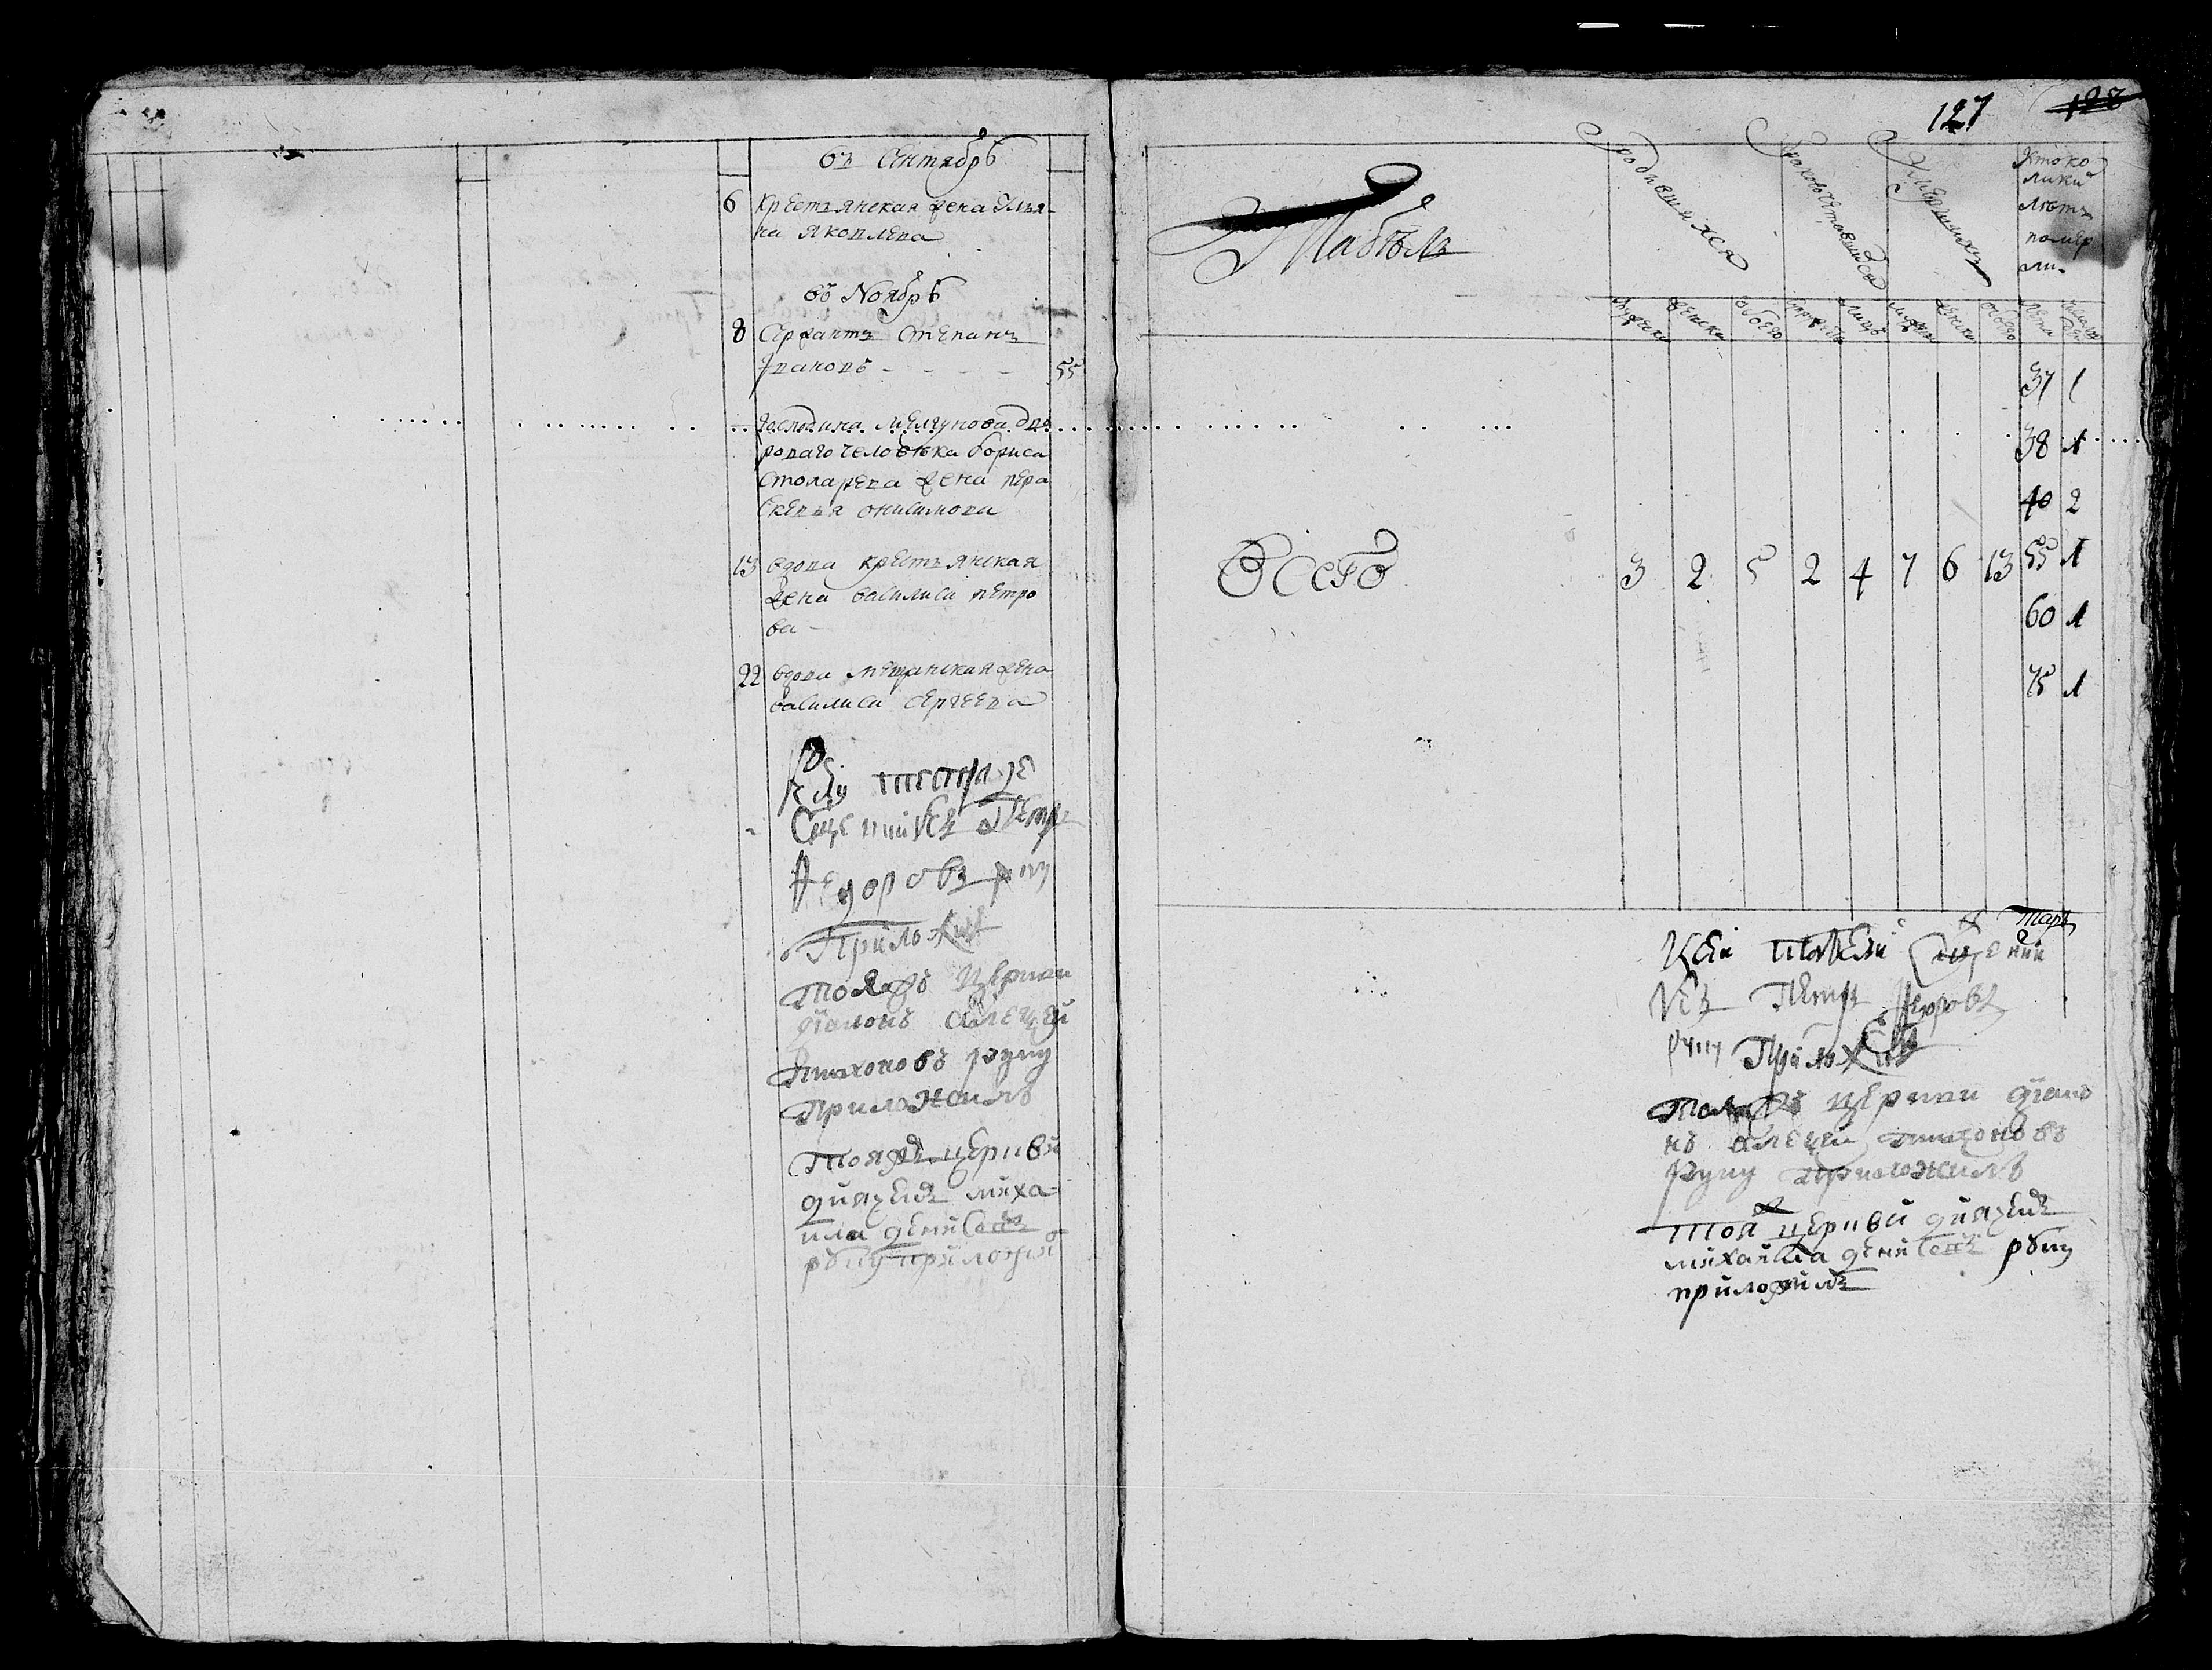 въ Сентябрѣ
6 крестьянская жена Улья-
на яковлева
въ Ноябрѣ
8 Сержантъ Степанъ
Ивановъ - - - - 55
господина мелгунова дво
роваго человѣка бориса
столарева жена пера
скевья онисимова
13 вдова крестьянская
жена василиса петро
ва -
22 вдова мещанская жена
василиса Сергеева
Священникъ Петръ
Федоровъ руку
Приложилъ
Тояжъ церкви
діаконъ алеѯей
Тихоновъ руку
Приложилъ
Тояжъ церкви
дьячекъ миха-
ила денисовъ
руку приложи
127 128
Табель
родившихся
бракосочетавшихся
умершихъ
Кто ко
лики
лѣтъ
помер
ли.
мужеска женска обоего лицъ женска обоего лѣта
37 1
38 1
40 2
Всего 3 2 5 2 4 7 6 13 55 1
60 1
75 1
Къ сей табели Священни
къ Петръ Федоровъ
руку Приложилъ
Тояжъ церкви діако
нъ алеѯей Тихоновъ
руку приложилъ
Тояж церкви дьячекъ
михаила денисовъ руку
приложилъ